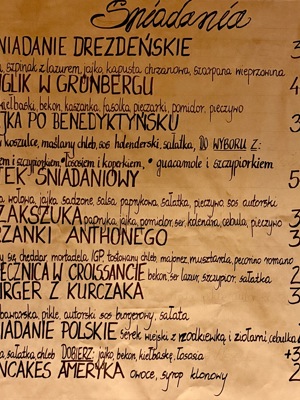 Śniadania
NIADANIE DREZDEŃSKIE 3
szpinak z lazurem, jajko, kapusta chrzanowa, szarpana wieprzowina
GLIK W GRÜNBERGU 4
kiełbaski, bekon, kaszanka, fasolka, pieczarki, pomidor, pieczywo
JKA PO BENEDYKTYŃSKU 3
koszulce, maślany chleb, sos holenderski, sałatka, DO WYBORU Z:
em i szczypiorkiem, • łososiem i koperkiem, • guacamole i szczypiorkiem
TEK ŚNIADANIOWY 5
wołowa, jajka sadzone, salsa, paprykowa, sałatka, pieczywo, sos autorski
ZAKSZUKA papryka, jajka, pomidor, ser, kolendra, cebula, pieczywo 3
RZANKI ANTHONEGO 3
się, cheddar, mortadela, IGP, tostowany chleb, majonez, musztarda, pecorino romano
ECZNICA W CROISSANCIE bekon, ser lazur, szczypior, sałatka 2
RGER Z KURCZAKA 3
bawarska, pikle, autorski sos burgerowy, sałata
IADANIE POLSKIE serek wiejski z rzodkiewką i ziołami, cebulka
sałatka, chleb DOBIERZ: jajko, bekon, kiełbaskę, łososia +3
NCAKES AMERYKA owoce, syrop klonowy 2